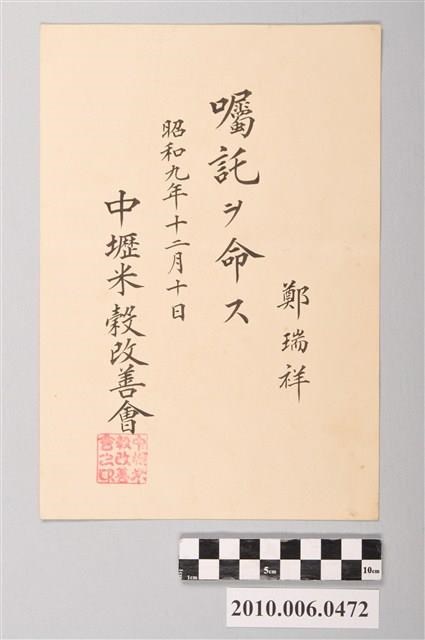 鄭瑞祥
囑託ヲ命ス
昭和九年十二月十日
中壢米穀改善會
中壢米
穀改善
會之印
1cm 5cm 10cm
2010.006.0472